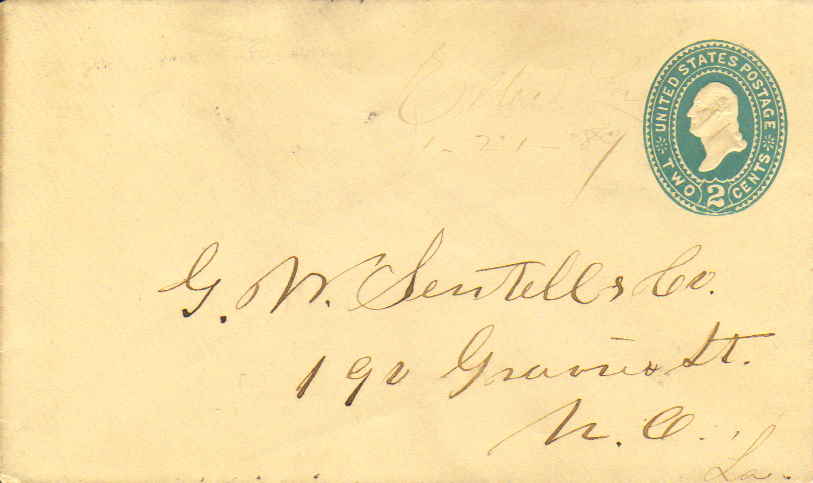 1-21-89
UNITED STATES POSTAGE
TWO 2 CENTS
G. W. Sentell & Co.
190 Gravier St.
N. O.
La.